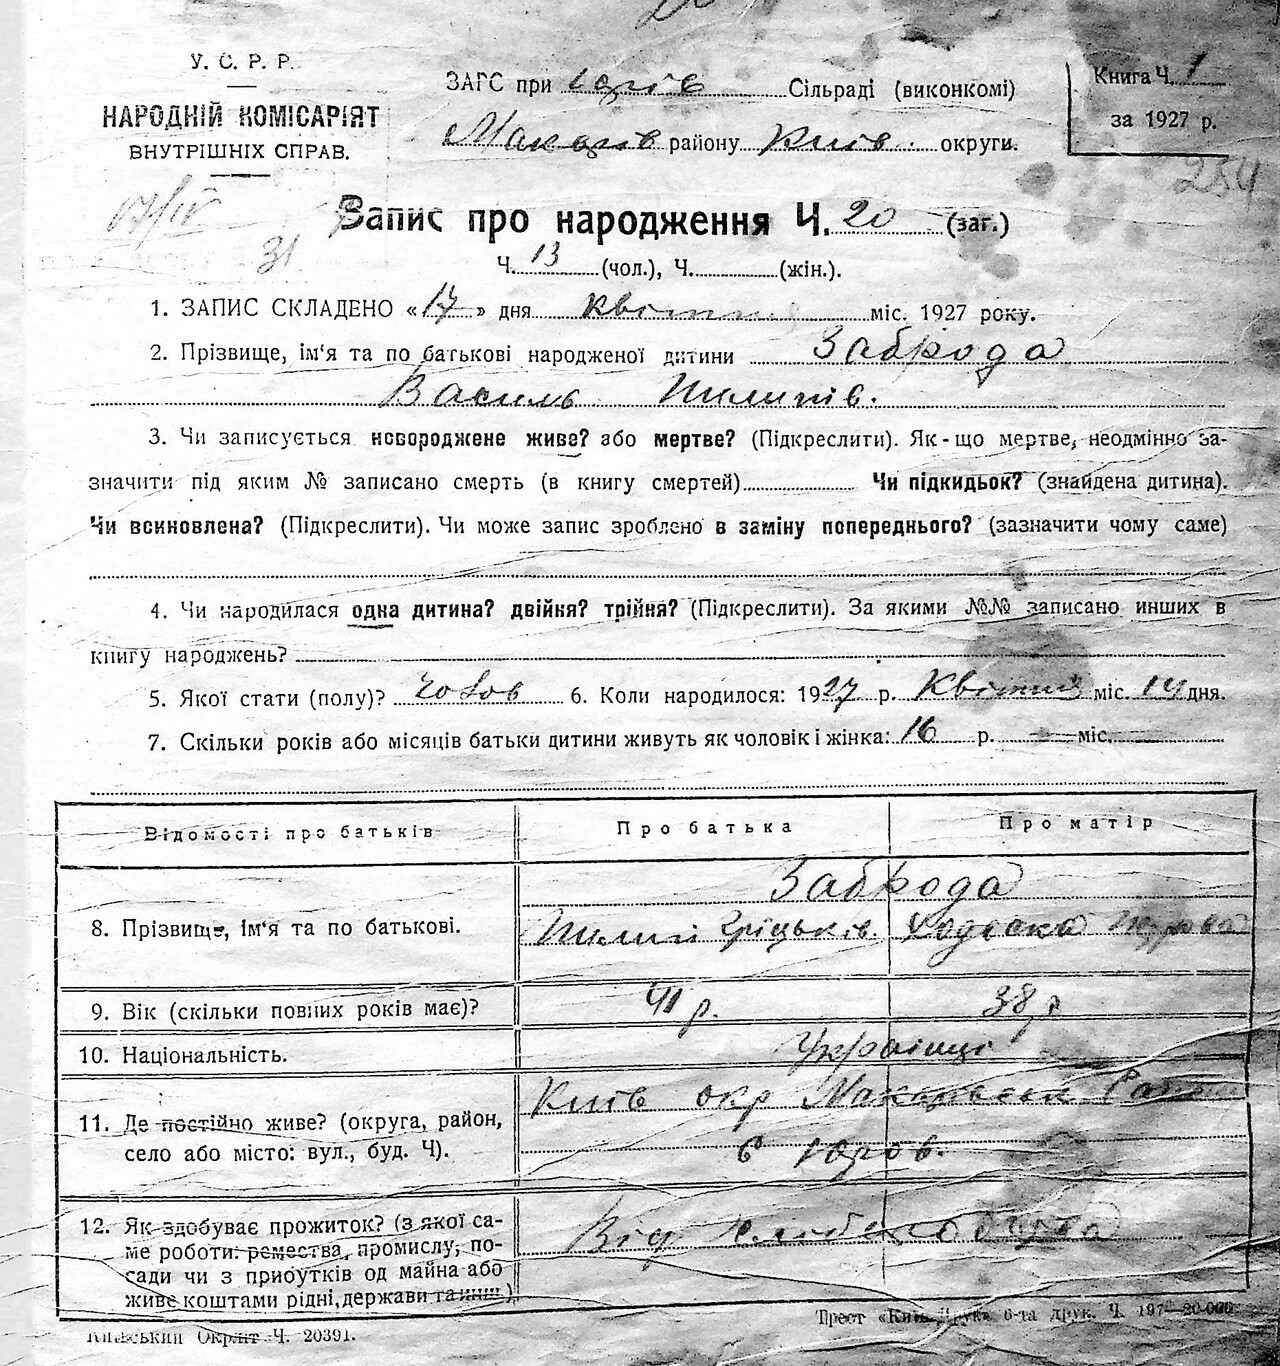 У. С. Р. Р.
НАРОДНІЙ КОМІСАРІЯТ
ВНУТРІШНІХ СПРАВ.
ЗАГС при Юрів Сільраді (виконкомі)
Макарів району Київ. округи.
Книга Ч. 1
за 1927 р.
254
17/IV
31
Запис про народження Ч. 20 (заг.)
Ч. 13 (чол.), Ч. (жін.).
1. ЗАПИС СКЛАДЕНО «17» дня квітня міс. 1927 року.
2. Прізвище, ім‘я та по батькові народженої дитини Заброда
Василь Пилипів.
3. Чи записується новороджене живе? або мертве? (Підкреслити). Як-що мертве, неодмінно за-
значити під яким № записано смерть (в книгу смертей) Чи підкидьок? (знайдена дитина).
Чи всиновлена? (Підкреслити). Чи може запис зроблено в заміну попереднього? (зазначити чому саме)
4. Чи народилася одна дитина? двійня? трійня? (Підкреслити). За якими №№ записано инших в
книгу народжень?
5. Якої стати (полу)? чолов 6. Коли народилося: 1927 р. Квітня міс. 14 дня.
7. Скільки років або місяців батьки дитини живуть як чоловік і жінка: 16 р. — міс.
Відомості про батьків Про батька Про матір
Заброда
8. Прізвище, ім‘я та по батькові. Пилип Гріцьків. Ходоска
9. Вік (скільки повних років має)? 41 р. 38 р
10. Національність. Українці
11. Де постійно живе? (округа, район,
село або місто: вул., буд. Ч).
Київ окр Макарівськ
с Юров.
12. Як здобуває прожиток? (з якої са-
ме роботи: ремества, промислу, по-
сади чи з прибутків од майна або
живе коштами рідні, держави та инш.)
Від хліборобства
Київський Окрліт Ч. 20391.
Трест «Київ-Друк» 6-та друк. Ч. 197—20.000